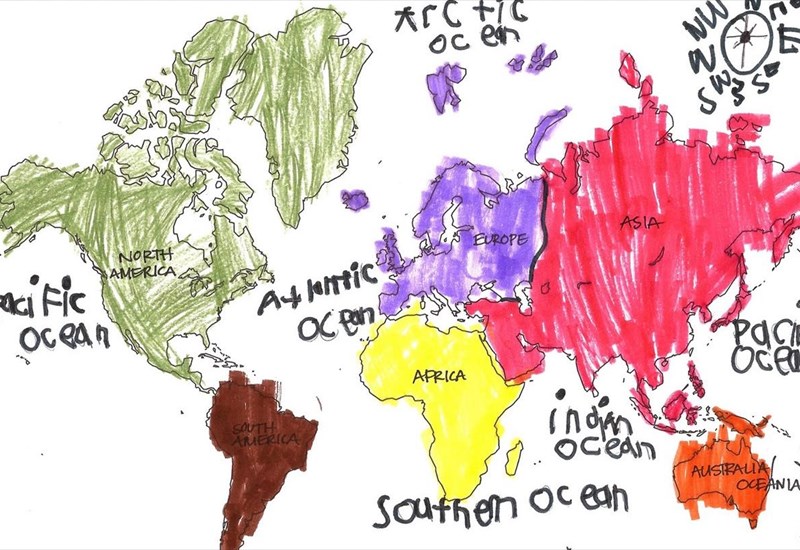 Arctic
ocean
NW N NE
W E
SW S SE
NORTH
AMERICA
EUROPE
ASIA
acific
ocean
Atlantic
ocean
Pacifi
ocea
AFRICA
indian
ocean
SOUTH
AMERICA
AUSTRALIA/
OCEANIA
Southern ocean